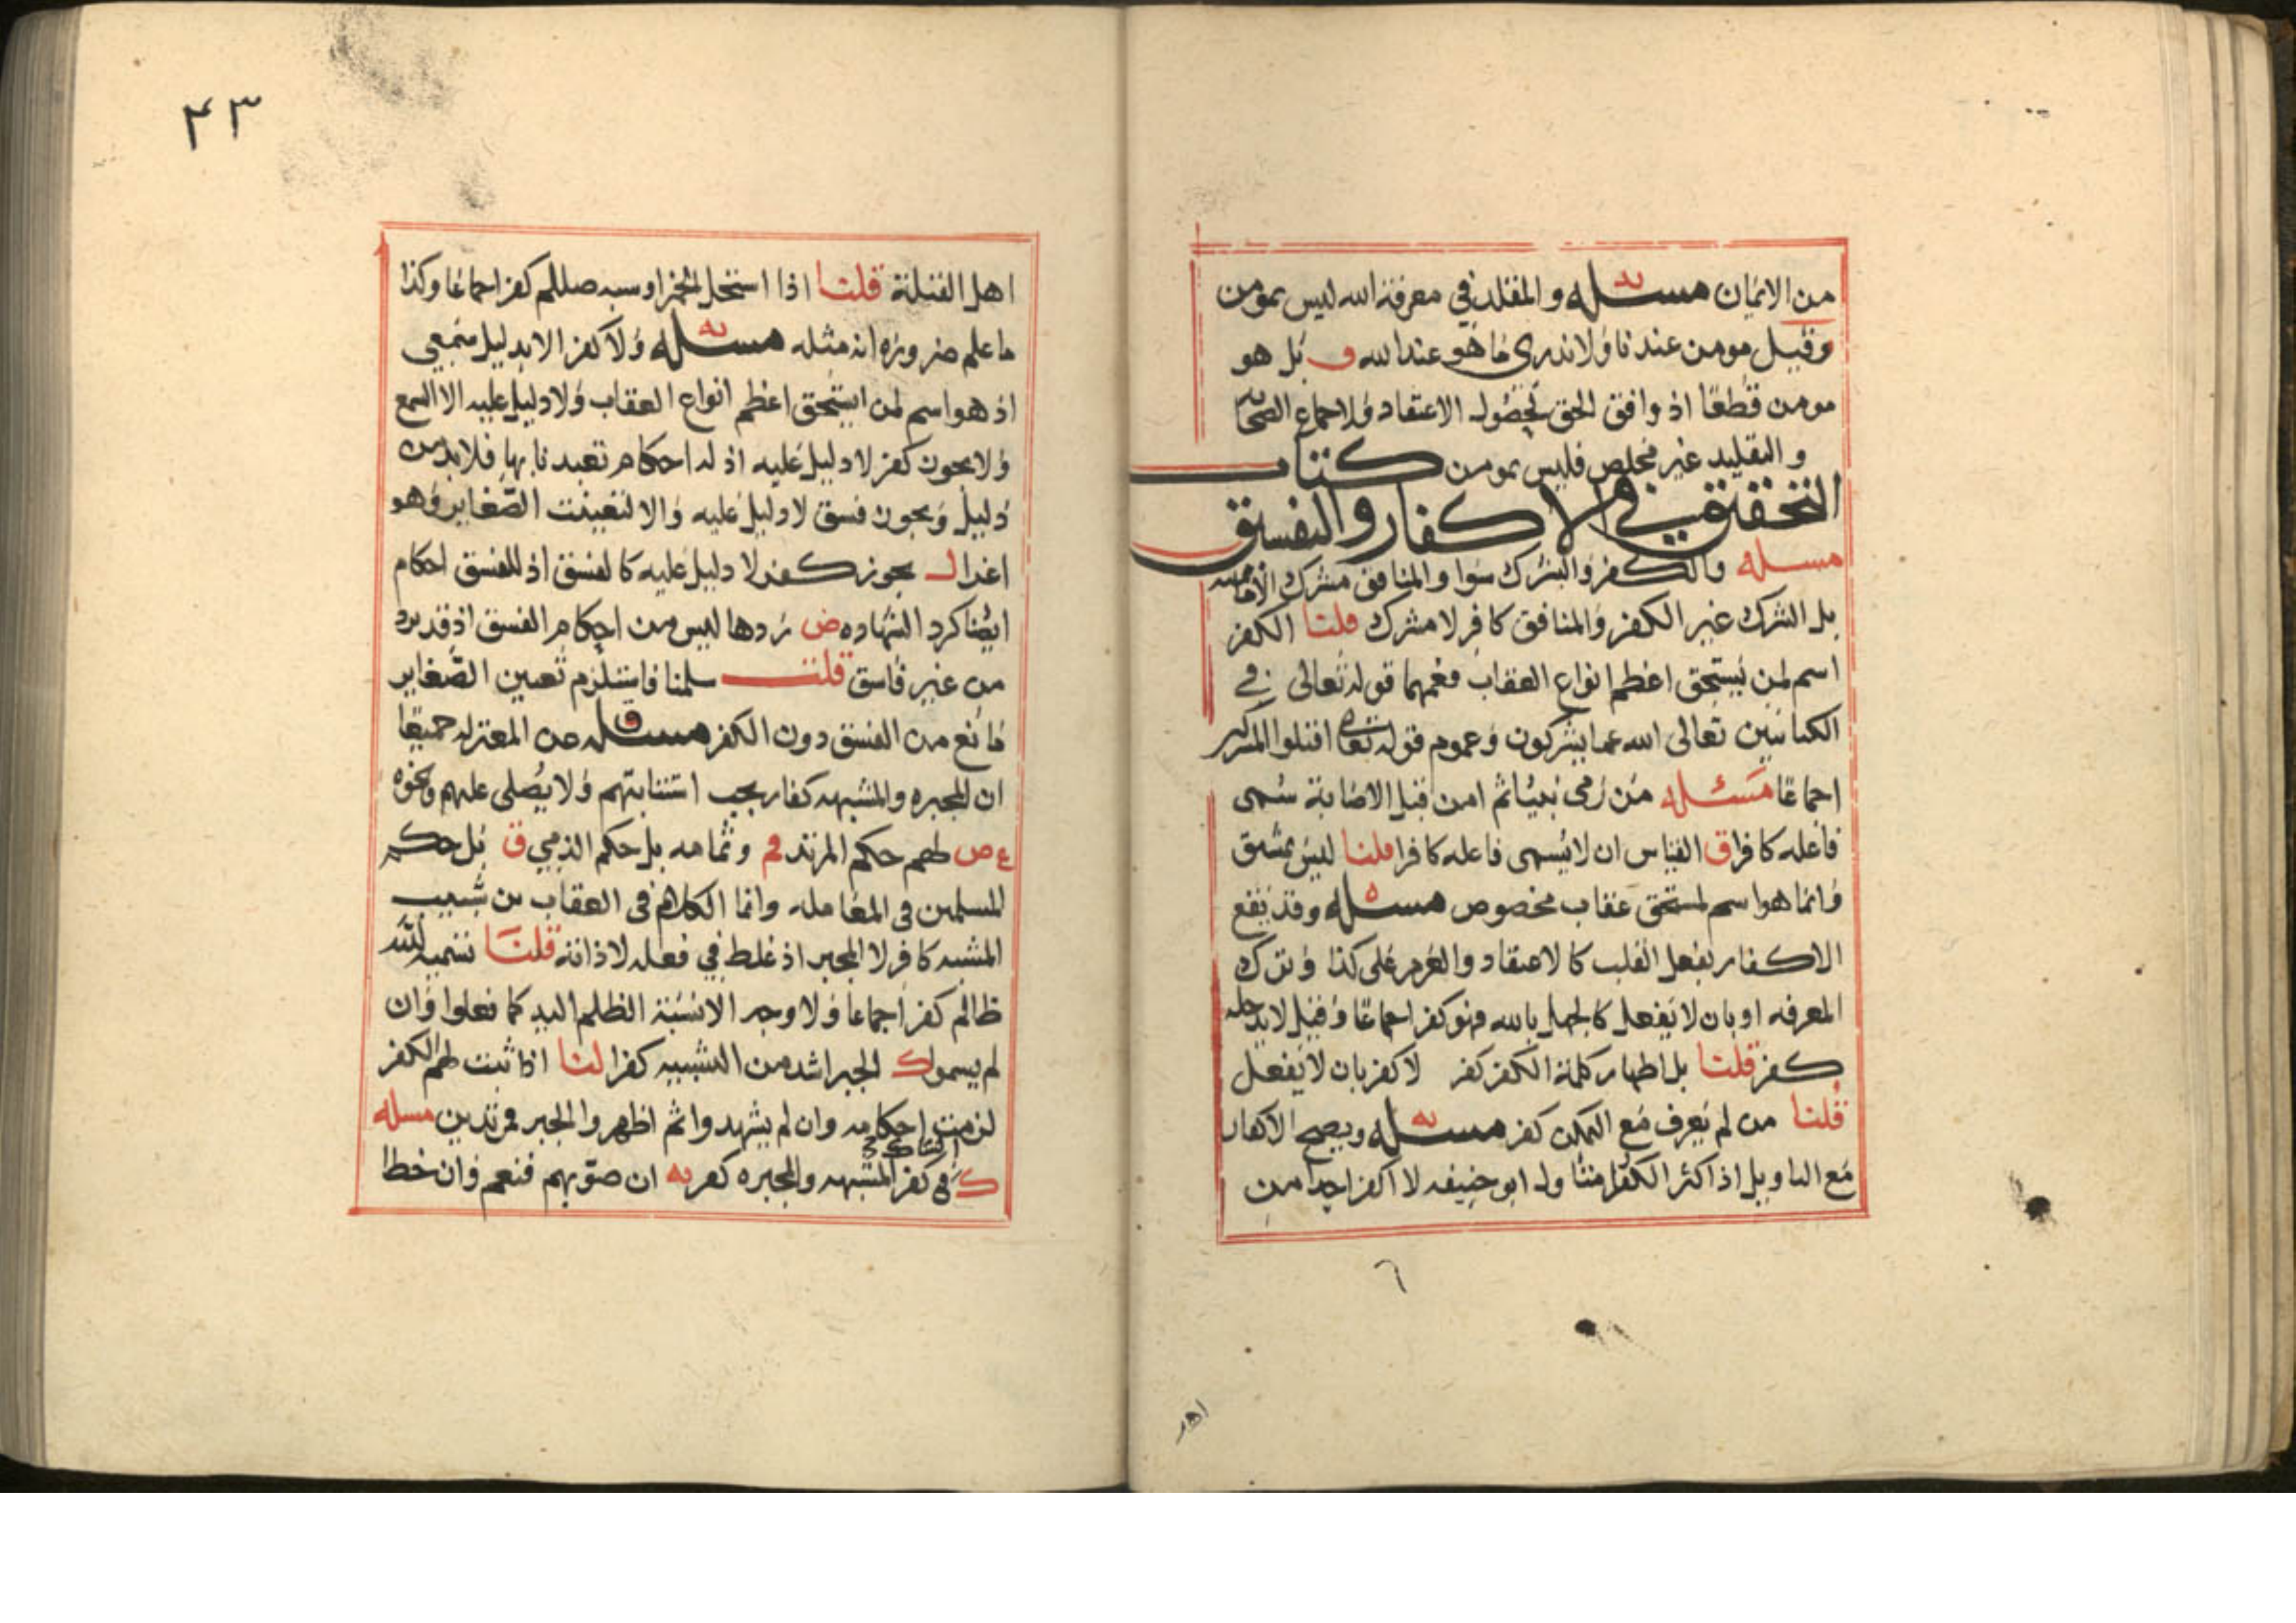 من الايمان مسئله والمقلد في معرفة الله ليس بمومن
وقيل مومن عندنا ولا ندرى ما هو عند الله و بل هو
مومن قطعا اذ وافق الحق لحصول الاعتقاد ولاجماع الصحابه
والتقليد غير مخلص فليس بمومن كتاب
التحقيق في الاكفار والتفسيق
مسله والكفر والشرك سوا والمنافق مشرك
بل الشرك غير الكفر والمنافق كافر لا مشرك قلنا الكفر
اسم لمن يستحق اعظم انواع العقاب فعمهما قوله تعالى في
الكتابيين تعالى الله عما يشركون وعموم قوله تعالى اقتلوا المشركين
اجماعا مسئله من رمى نبيا ثم امن قبل الاصابة سمى
فاعله كافرا ق القياس ان لا يسمى فاعله كافرا قلنا ليس بمشتق
وانما هو اسم لمستحق عقاب مخصوص مسئله وقد يقع
الاكفار بفعل القلب كالاعتقاد والعزم على كذا وبترك
المعرفه او بان لا يفعل كالجهل بالله فهو كفر اجماعا وقيل لا يدخله
كفر قلنا بل اظهار كلمة الكفر كفر لا كفر بان لا يفعل
قلنا من لم يعرف مع التمكن كفر مسئله ويصح الاكفار
مع التاويل اذ اكثر الكفر منشا ول ابو حنيفه لا اكفر احدا من
٦
اهل
٤٣
اهل القبلة قلنا اذا استحل الخمر او سبه صللم كفر اجماعا وكذا
ما علم ضرورة انه مثله مسئله ولا كفر الا بدليل سمعي
اذ هو اسم لمن استحق اعظم انواع العقاب ولا دليل عليه الا السمع
ولا يجوز كفر لا دليل عليه اذ له احكام تعبدنا بها فلا بد من
دليل ويجوز فسق لا دليل عليه والا لتعينت الصغاير وهو
اغرا ل يجوز كفر لا دليل عليه كالفسق اذ للفسق احكام
ايضا كرد الشهاده ض ردها ليس من احكام الفسق اذ قد يرد
من غير فاسق قلت سلمنا فاستلزم تعيين الصغاير
مانع من الفسق دون الكفر مسئله من المعتزله جميعا
ان المجبره والمشبهه كفار يجب استتابتهم ولا يصلى عليهم ونحوه
ع ص لهم حكم المرتد م وثمامه بل حكم الذمي ق بل حكم
المسلمين في المعامله وانما الكلام في العقاب من شبيب
المشبه كافر لا المجبر اذ غلط في فعله لا ذاته قلنا تسميه الله
ظالم كفر اجماعا ولا وجه الا نسبة الظلم اليه كما فعلوا وان
لم يسموا ك الجبر اشد من التشبيه كفرا لنا اذا ثبت لهم الكفر
لزمت احكامه وان لم يشهدوا ثم اظهروا الجبر فمرتدين مسله
ك في كفر المشبهه والمجبره كفر به ان صوبهم فنعم وان خطا